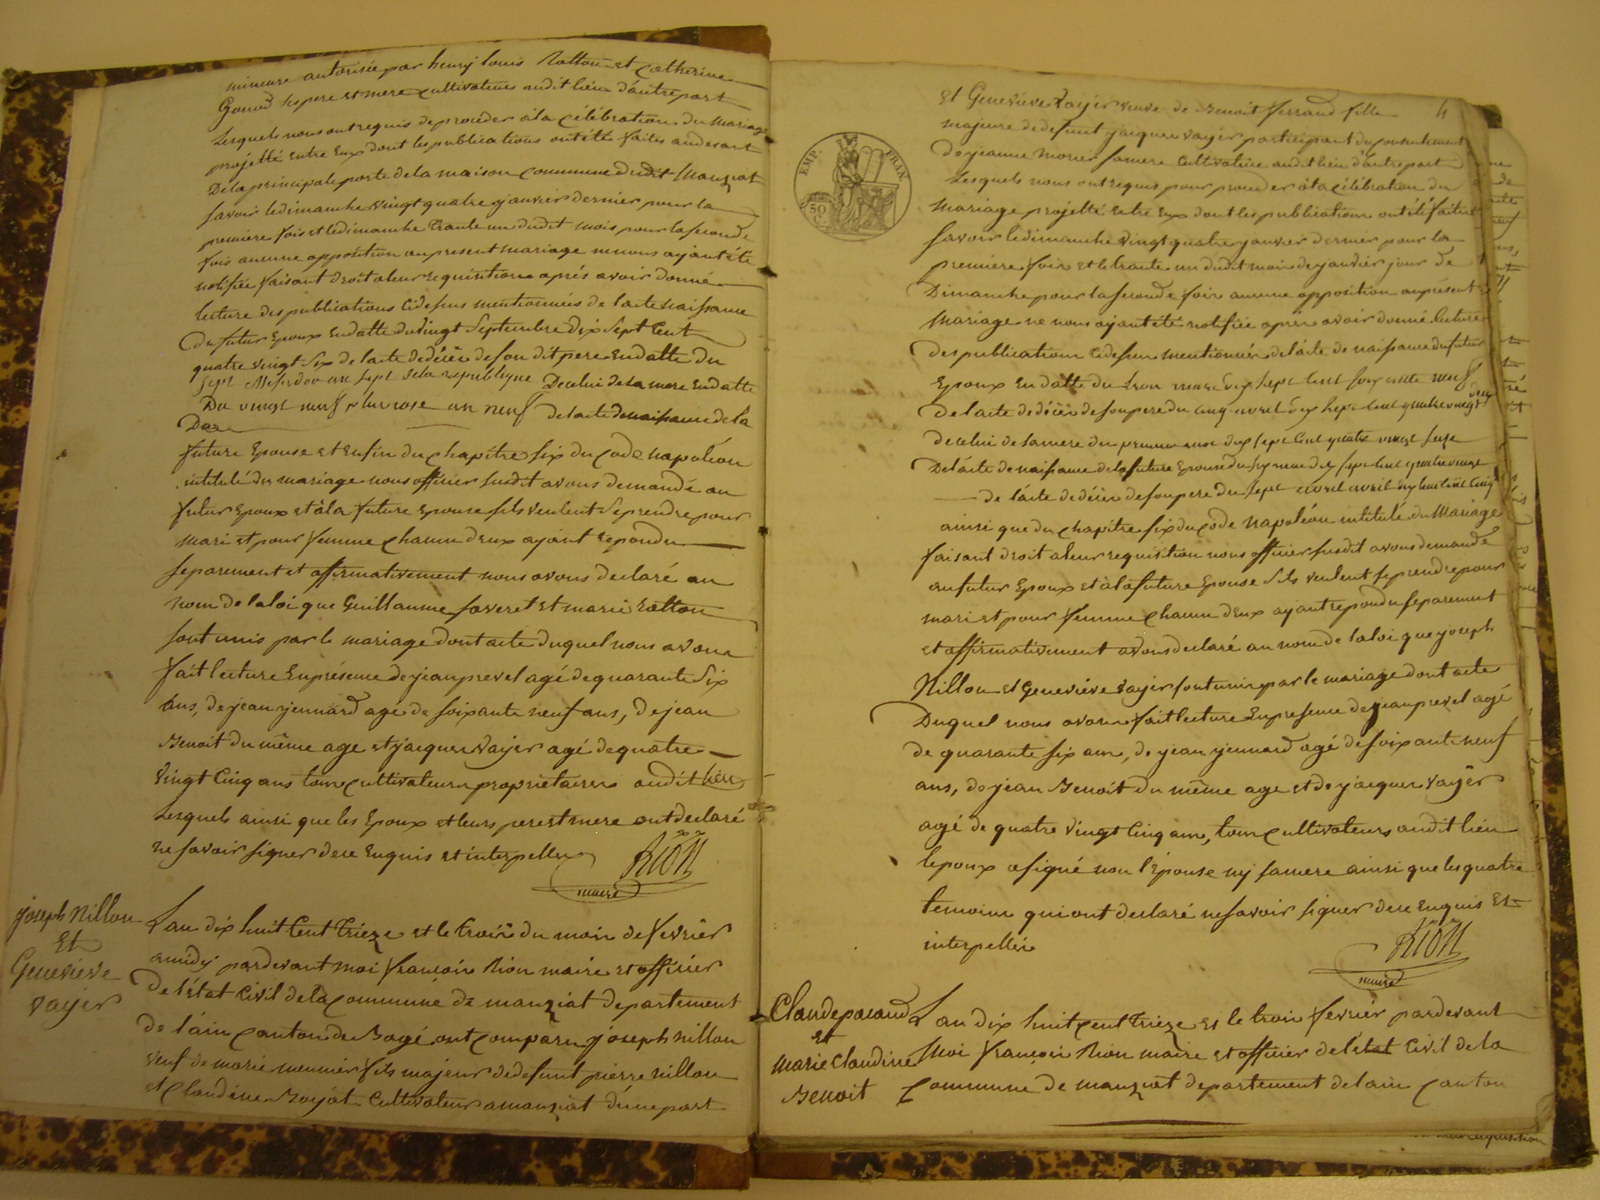 mineure autorisée par henry louis Rollon et Catherine
Gonod ses pere et mere cultivateurs audit lieu d'autre part
Lesquels nous ont requis de proceder a la célébration du Mariage
projetté entre Eux dont les publications ont été faites au devant
De la principale porte de la maison commune dudit Manziat
savoir le dimanche vingt quatre janvier dernier pour la
premiere fois et le dimanche trante un dudit mois pour la seconde
fois aucune opposition au present mariage ne nous ayant été
notifiée faisant droit a leur requisition après avoir donné
lecture des publications ci dessus mentionnées de l'acte naissance
Du futur Epoux en datte du vingt Septembre dix Sept Cent
quatre vingt Six de l'acte de décès de son dit pere en datte du
Sept Messidor an sept de la republique De celui de sa mere en datte
Du vingt neuf pluviose an neuf de l'acte de naissance de la
future Epouse et Enfin du chapitre six du Code napoléon
intitulé du mariage nous officier susdit avons demandé au
futur Epoux et à la future Epouse s'ils veulent se prendre pour
Mari et pour femme chacun d'eux ayant repondu
separement et affirmativement nous avons declaré au
nom de la loi que Guillaume faveret et marie
sont unis par le mariage dont acte duquel nous avons
fait lecture En présence de jean prevel agé de quarante Six
ans, de jean jennard age de soixante neuf ans, de jean
Benoit du même age et jacques Vayer agé de quatre
vingt Cinq ans tous cultivateurs proprietaires audit lieu
Lesquels ainsi que les Epoux et leurs pere et mere ont declaré
ne savoir signer de ce Enquis et interpellés
Rion
maire
joseph Nillon
Et
Genevieve
vayer
L'an dix huit Cent treize et le trois du mois de fevrier
a midy pardevant moi françois Rion maire et officier
De l'état Civil de la Commune de manziat departement
de l'ain Canton de Bagé ont comparu joseph nillon
veuf de marie meunier fils majeur de defunt pierre nillon
et Claudine Boyat Cultivateur a manziat d'une part
4
EMP. FRAN.
50 C.
Et Genevieve Vayer veuve de Benoit ferrand fille
majeure de defunt jacques vayer participant du consentement
de jeanne Morier sa mere Cultivatrice audit lieu d'autre part
Lesquels nous ont requis pour proceder à la célébration du
Mariage projetté Entre Eux dont les publications ont été faites
savoir le dimanche vingt quatre janvier dernier pour la
premiere fois et le trante un dudit mois de janvier jour de
Dimanche pour la seconde fois aucune opposition au present
Mariage ne nous ayant été notifiée après avoir donné lecture
Des publications ci dessus mentionnées de l'acte de naissance du futur
Epoux en datte du trois sept cent soixante neuf
De l'acte de décès de son pere du cinq avril dix sept cent quatre vingt
de celui de sa mere du premier dix sept cent quatre vingt
De l'acte de naissance de la future Epouse du dix sept cent quatre vingt
de l'acte de décès de son pere du sept avril dix huit cent cinq
ainsi que du chapitre six du Code napoléon intitulé du Mariage
faisant droit a leur requisition nous officier susdit avons demandé
au futur Epoux et à la future Epouse s'ils veulent se prendre pour
mari et pour femme chacun d'eux ayant repondu separement
et affirmativement avons declaré au nom de la loi que joseph
Nillon et Geneviéve Vayer sont unis par le mariage dont acte
Duquel nous avons fait lecture En presence de jean prevel agé
de quarante six ans, de jean jennard agé de soixante neuf
ans, de jean Benoit du même age et de jacques vayer
agé de quatre vingt Cinq ans, tous cultivateurs audit lieu
l'epoux a signé non l'épouse ny sa mere ainsi que les quatre
temoins qui ont declaré ne savoir signer de ce Enquis Et
interpellés
Rion
maire
Claude pacaud
et
Marie Claudine
Benoit
L'an dix huit cent treize et le trois fevrier pardevant
Moi françois Rion maire et officier de l'état Civil de la
Commune de manziat departement de l'ain Canton